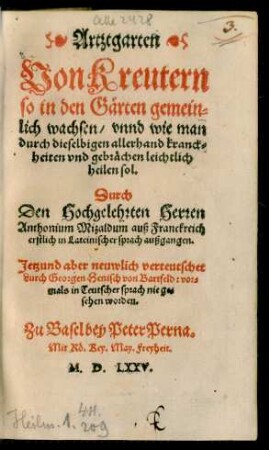 Alle 2428
3.
Artzgarten
Von Kreutern
so in den Gärten gemein-
lich wachsen/ vnnd wie man
durch dieselbigen allerhand kranck-
heiten vnd gebrächen leichtlich
heilen sol.
Durch
Den Hochgelehrten Herren
Anthonium Mizaldum auß Franckreich
erstlich in Lateinischer sprach außgangen.
Jetzund aber neuwlich verteutschet
durch Georgen Henisch von Bartfeld: vor-
mals in Teutscher sprach nie ge-
sehen worden.
Zu Basel bey Peter Perna.
Mit Rö. Key. May. freyheit.
M. D. LXXV.
Heilm. 1. 411.
209